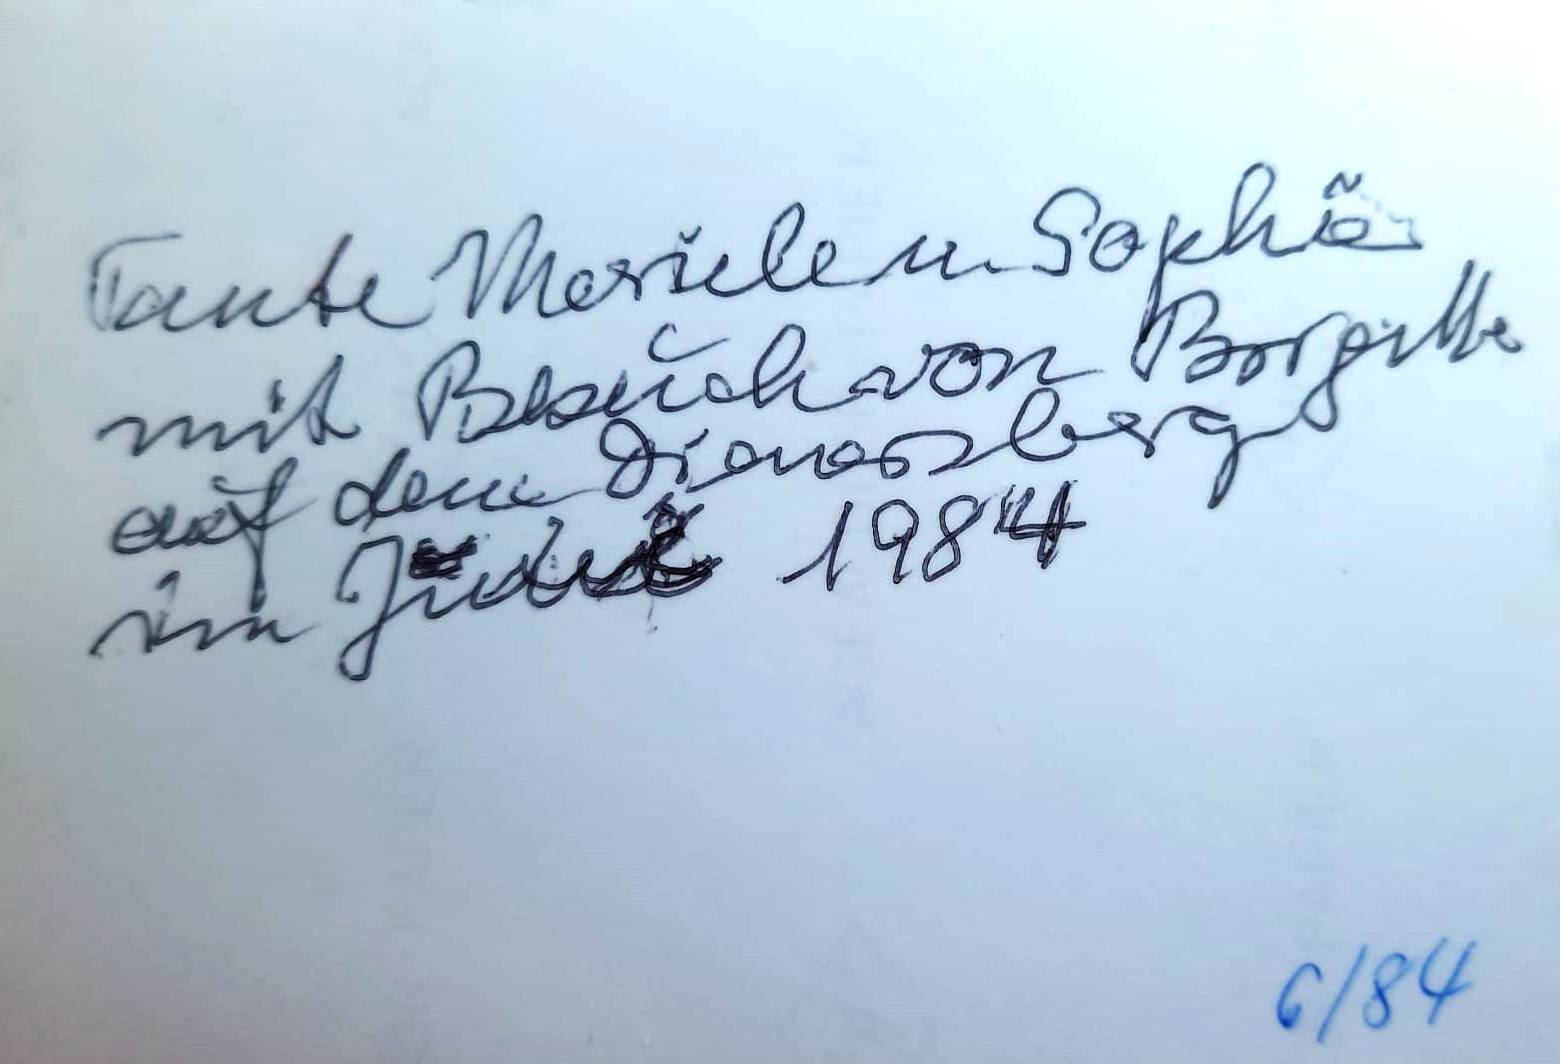 Tante Mariele u. Sophie
mit Besuch von
auf dem
im 1984
6/84